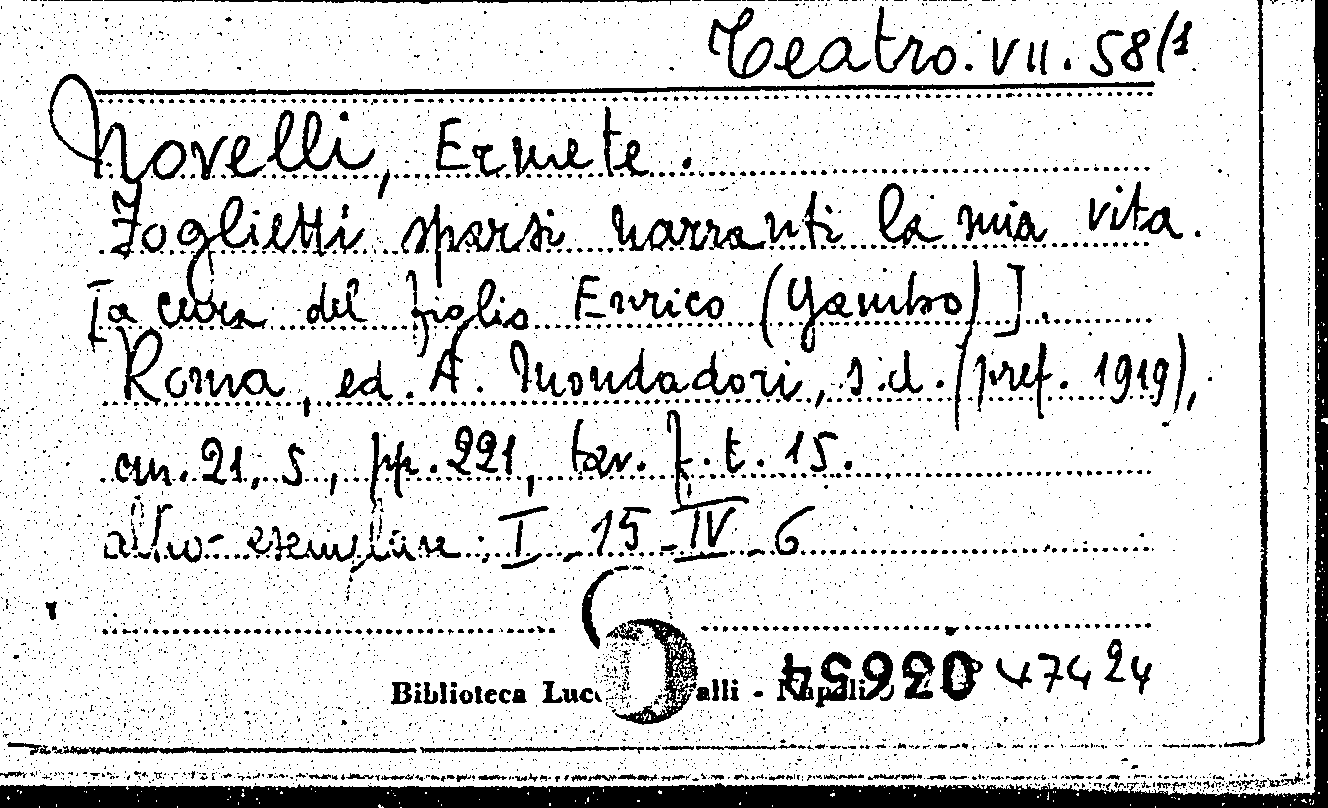 Teatro. VII. 58/1
Novelli, Ermete.
Foglietti sparsi narranti la mia vita.
[a cura del figlio Enrico (Yambo)].
Roma, ed. A. Mondadori, s.d. (pref. 1919),
cm. 21,5, pp. 221, tav. f. t. 15.
altro esemplare: I - 15 - IV - 6
Biblioteca alli - Napoli 47424
03654